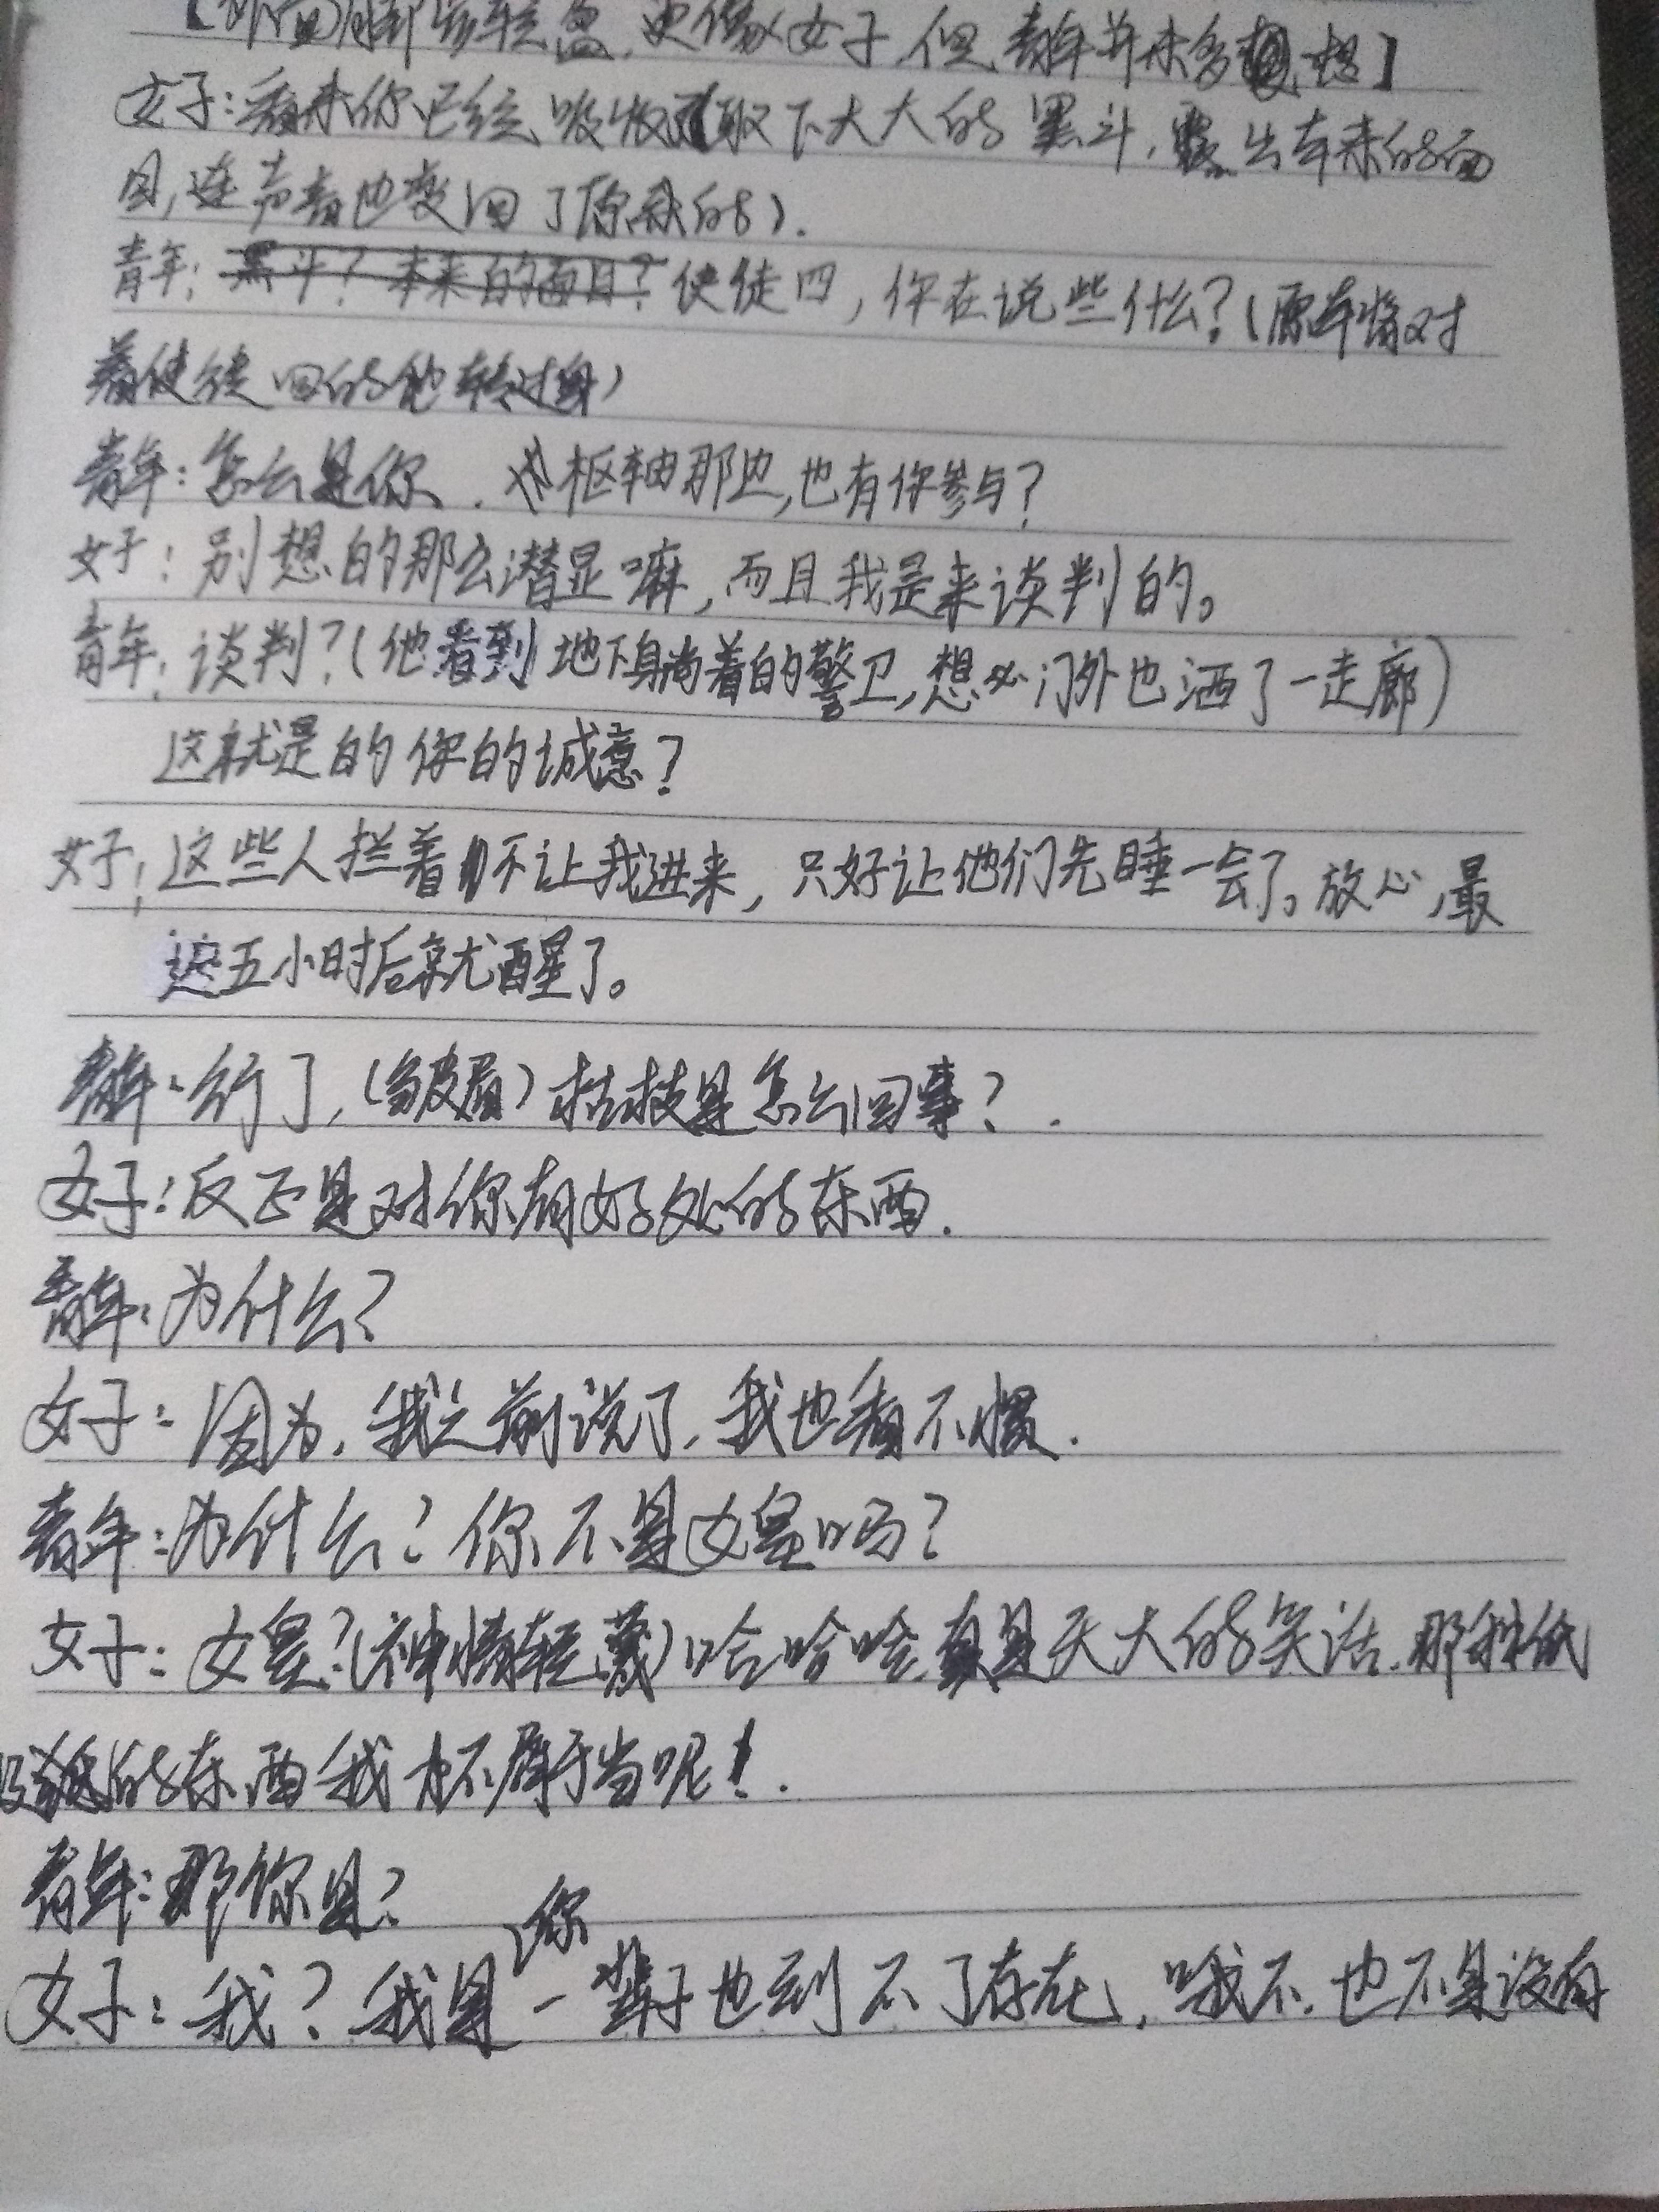 脚步轻盈,更像女子,但青年并未多想】
女子:看来你已经吸收了(取下大大的黑斗,露出本来的面
目,连声音也变回了原来的).
青年:黑斗?本来的面目?使徒四,你在说些什么?(原本背对
着使徒四的他转过身)
青年:怎么是你、.枢轴那边,也有你参与?
女子:别想的那么潜显嘛,而且我是来谈判的。
青年:谈判?(他看到地下躺着的警卫,想必门外也洒了一走廊)
这就是的你的诚意?
女子:这些人拦着不让我进来,只好让他们先睡一会了。放心,最
迟五小时后就醒了。
青年:行了,(皱眉)枯枝是怎么回事?.
女子:反正是对你有好处的东西.
青年:为什么?
女子:因为,我之前说了,我也看不惯.
青年:为什么?你不是女皇吗?
女子:女皇?(神情轻蔑)哈哈哈,真是天大的笑话.那种低
级的东西我才不屑于当呢!.
青年:那你是?
女子:我?我是你一辈子也到不了存在,哦不.也不是没有